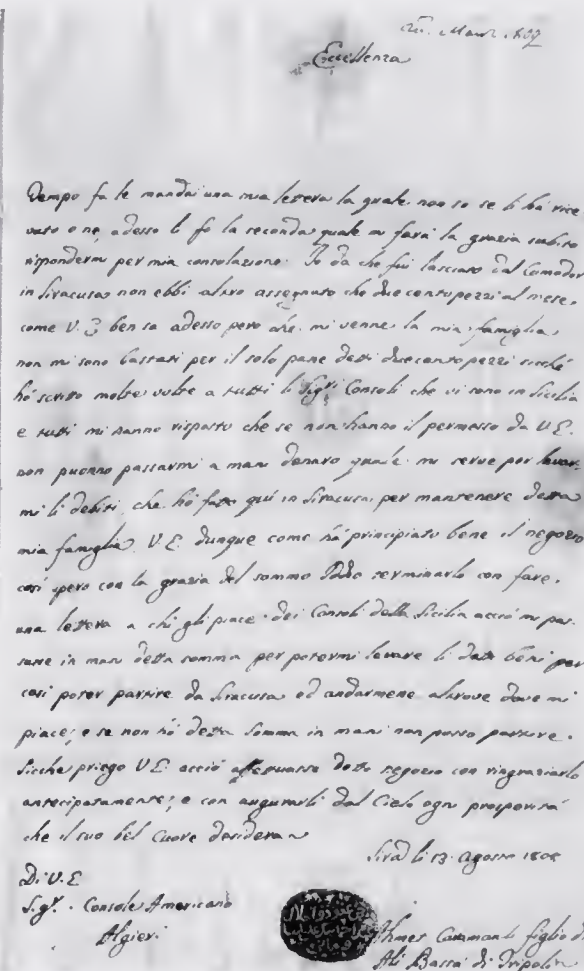 Eccellenza
Tempo fa le mandai una mia lettera la quale non so se li hà rice
vuto o nò, adesso li fo la seconda quale mi farà la grazia subito
rispondermi per mia consolazione. Io da che fui lasciato dal Comodor
in Siracusa non ebbi altro assegnato che duecento pezzi al mese,
come V. E. ben sa adesso però che mi venne la mia famiglia
non mi sono bastati per il solo pane detti duecento pezzi sicchè
hò scritto molte volte a tutti li Sigri Consoli che vi sono in Sicilia
e tutti mi hanno risposto che se non hanno il permesso da V.E.
non puonno passarmi a mani denaro quale mi serve per levar=
mi li debiti, che hò fatto quì in Siracusa per mantenere detta
mia famiglia. V.E. dunque come hà principiato bene il negozio
così spero con la grazia del sommo Iddio terminarlo con fare
una lettera a chi gli piace dei Consoli della Sicilia acciò mi pas
sano in mani detta somma per potermi levare li per
così poter partire da Siracusa ed andarmene altrove dove mi
piace; e se non hò detta somma in mani non posso partire.
Sicche priego V.E. acciò detto negozio con ringraziarlo
antecipatamente; e con augurarli dal Cielo ogni prosperità
che il suo bel Cuore desidera
Sira li 13 Agosto
Di V.E
Sigr. Console Americano
Algieri
Ahmet Caramanli figlio di
Alì Bassà di Tripoli